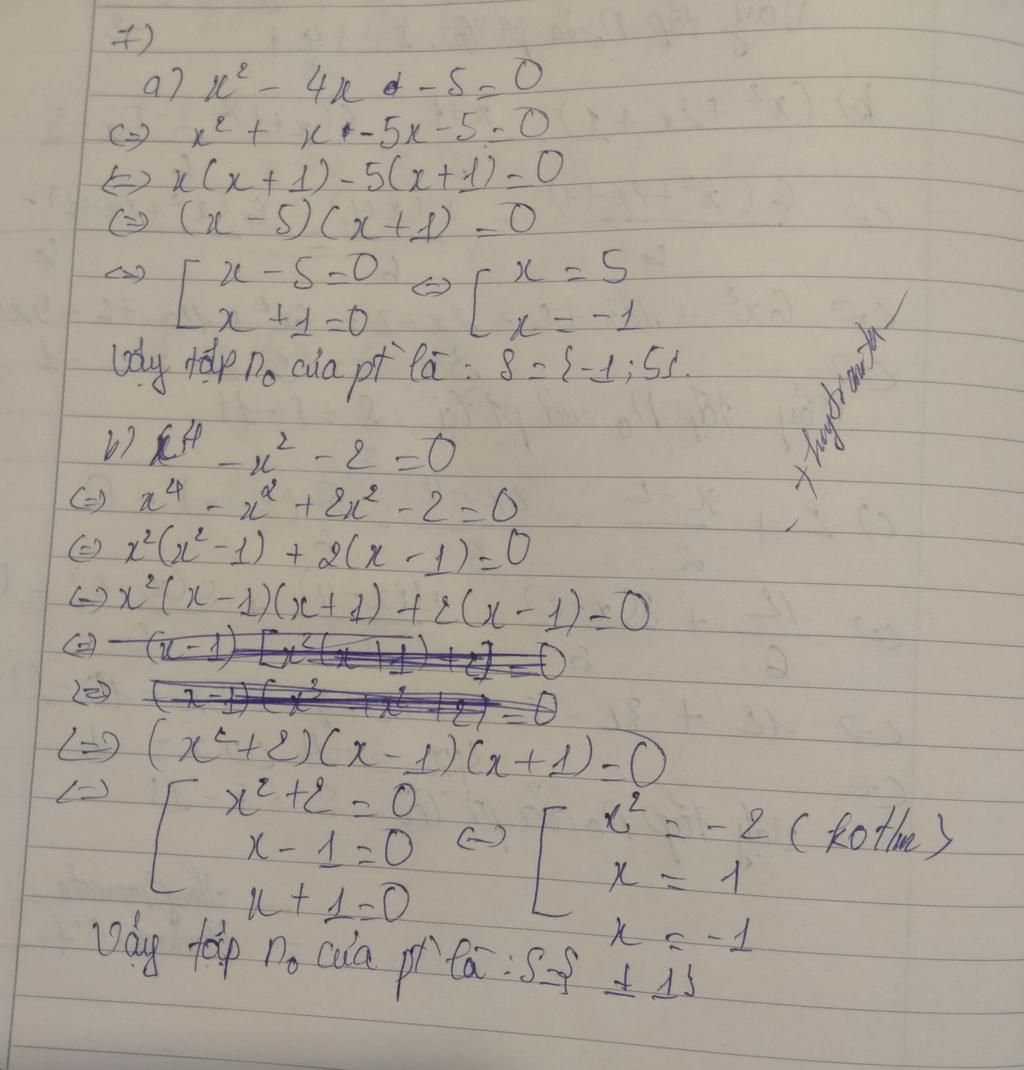 7)
a) x² - 4x - 5 = 0
<=> x² + x - 5x - 5 = 0
<=> x(x + 1) - 5(x + 1) = 0
<=> (x - 5)(x + 1) = 0
<=> [ x - 5 = 0 <=> [ x = 5
x + 1 = 0 x = -1
Vậy tập n₀ của pt là : S = {-1 ; 5}.
b) x⁴ - x² - 2 = 0
<=> x⁴ - x² + 2x² - 2 = 0
<=> x²(x² - 1) + 2(x - 1) = 0
<=> x²(x - 1)(x + 1) + 2(x - 1) = 0
<=> (x - 1) [x²(x + 1) + 2] = 0
<=> (x - 1)(x³ + x² + 2) = 0
<=> (x² + 2)(x - 1)(x + 1) = 0
<=> [ x² + 2 = 0 <=> [ x² = -2 (kothm)
x - 1 = 0 x = 1
x + 1 = 0 x = -1
Vậy tập n₀ của pt là : S = { ± 1}